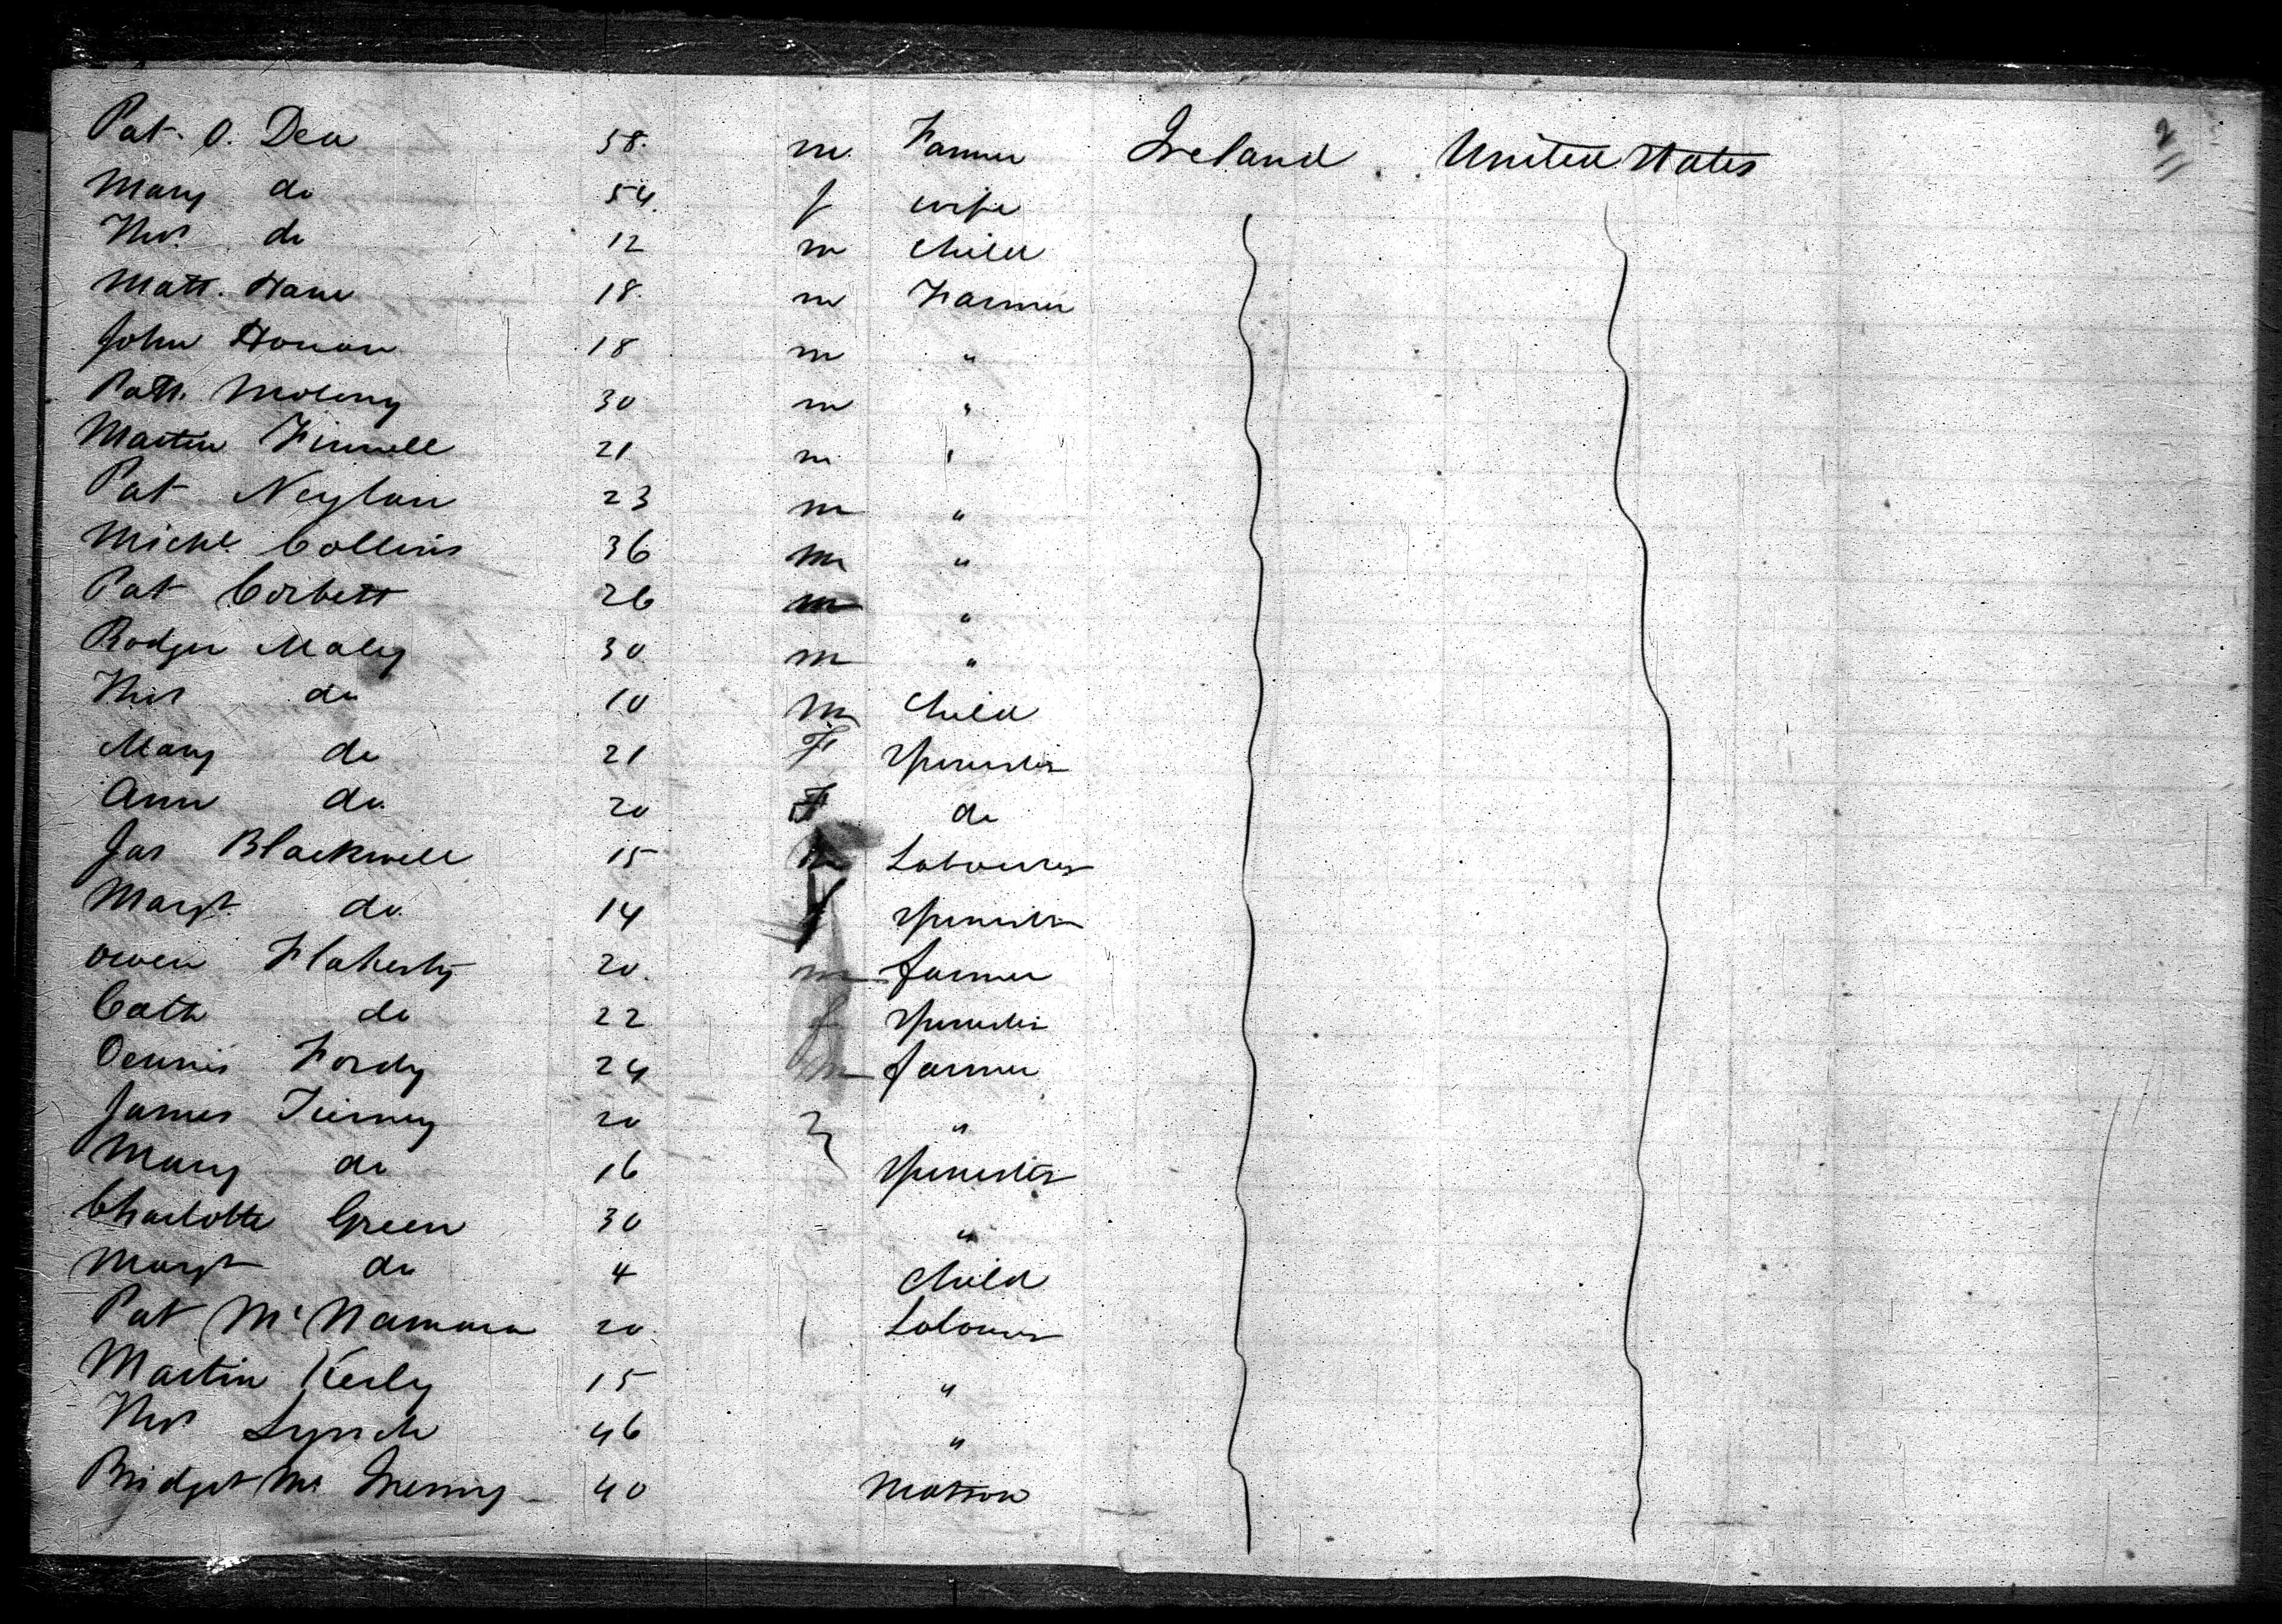 Pat. O. Dea 58. m. Farmer Ireland. United States
Mary do 54. f wife
Thos do 12 m child
Matt. Hane 18. m Farmer
John Honan 18 m "
Patk. Molony 30 m "
Martin Finnell 21 m "
Pat Neylan 23 m "
Michl Collins 36 m "
Pat Corbett 26 m "
Rodger Maley 30 m "
Thos do 10 m Child
Mary do 21 F Spinster
Ann do 20 F do
Jas Blackwell 15 m Labourer
Margt. do 14 f Spinster
Owen Flaherty 20. m farmer
Cath do 22 f Spinster
Dennis Fordy 24 m farmer
James Tierney 20 "
Mary do 16 Spinster
Charlotte Green 30 "
Margt do 4 child
Pat McNamara 20 Labourer
Martin Kerly 15 "
Thos Lynch 46 "
Bridget Mc 40 Matron